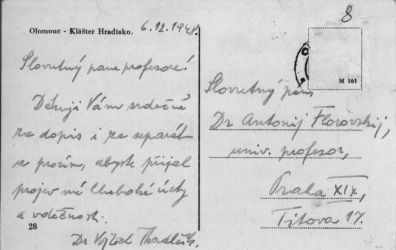 Olomouc - Klášter Hradisko.
6.12.1948.
8
M 161
Slovutný pane profesore!
Děkuji Vám srdečně
za dopis i za separát
a prosím, abyste přijal
projev mé hluboké úcty
a vděčnosti.
Dr Vojtěch
28
Slovutný pan
Dr Antonij Florovskij,
univ. profesor,
Praha XIX,
Titova 17.